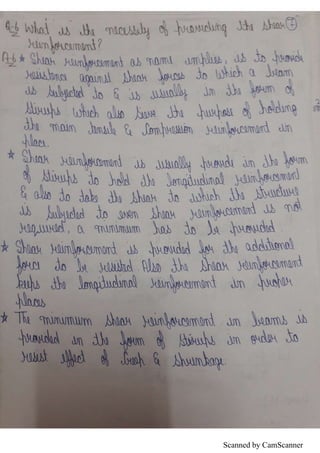 Q.6 What is the necessity of providing the shear
reinforcement?
A.6 * Shear reinforcement as name implies, is to provide
resistence against shear forces to which a beam
is subjected to & is usually in the form of
stirrups which also serve the purpose of holding
the main tensile & Compression reinforcement in
place.
* Shear reinforcement is usually provide in the form
of stirups to hold the longitudinal reinforcement
& also to take the shear to which the structure
is subjected to even shear reinforcement is not
required, a minimum has to be provided
* Shear reinforcement is provided for the additional
force to be resisted Also the shear reinforcement
keeps the longitudinal reinforcement in proper
places
* The minimum shear reinforcement in beams is
provided in the form of stirups in order to
resist effect of Creep & Shrinkage.
Scanned by CamScanner